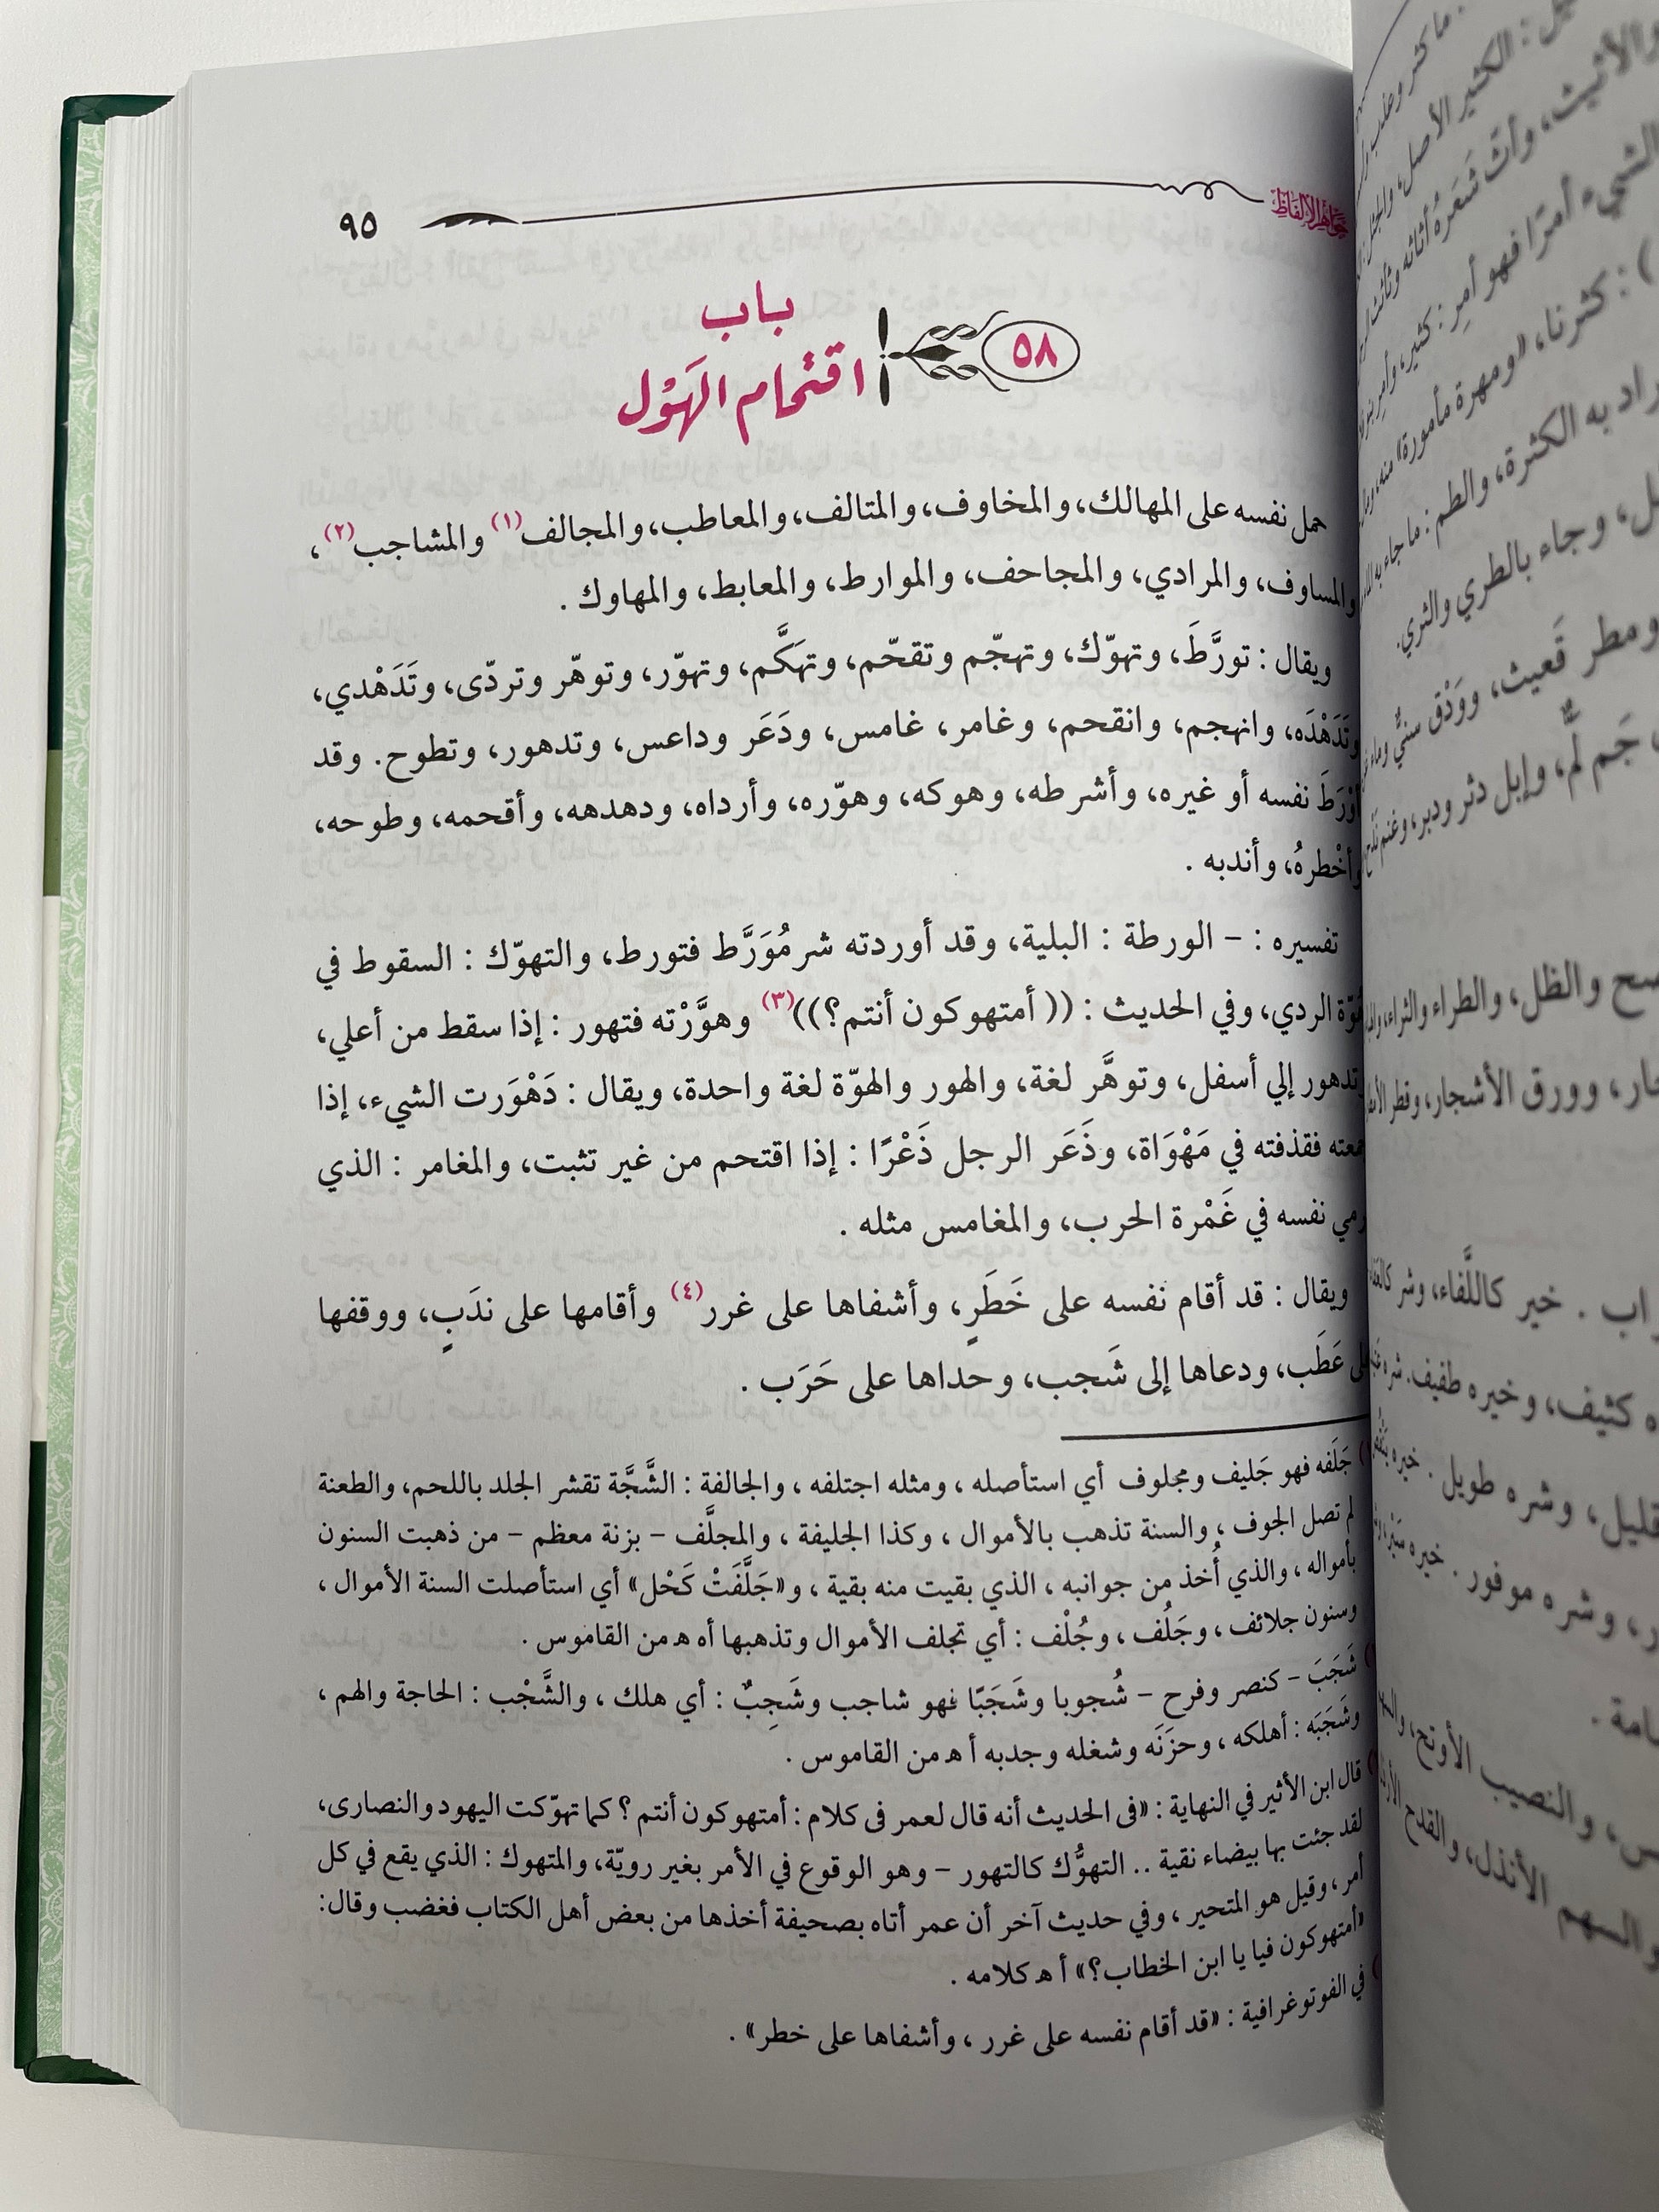 جواهر الألفاظ
٩٥
٥٨
باب
اقتحام الهَوْل
حمل نفسه على المهالك، والمخاوف، والمتالف، والمعاطب، والمجالف(١) والمشاجب(٢)،
والمساوف، والمرادي، والمجاحف، والموارط، والمعابط، والمهاوك .
ويقال : تورَّطَ، وتهوّك، وتهجّم وتقحّم، وتهَكَّم، وتهوّر، وتوهّر وتردّى، وتَدَهْدي،
وتَدَهْدَه، وانهجم، وانقحم، وغامر، غامس، ودَعَر وداعس، وتدهور، وتطوح. وقد
أوْرَطَ نفسه أو غيره، وأشرطه، وهوكه، وهوّره، وأرداه، ودهدهه، وأقحمه، وطوحه،
وأخْطرهُ، وأندبه .
تفسيره : – الورطة : البلية، وقد أوردته شر مُوَرَّط فتورط، والتهوّك : السقوط في
هُوّة الردي، وفي الحديث : (( أمتهوكون أنتم؟))(٣) وهوَّرْته فتهور : إذا سقط من أعلي،
وتدهور إلي أسفل، وتوهَّر لغة، والهور والهوّة لغة واحدة، ويقال : دَهْوَرت الشيء، إذا
فقذفته في مَهْوَاة، وذَعَر الرجل ذَعْرًا : إذا اقتحم من غير تثبت، والمغامر : الذي
يرمي نفسه في غَمْرة الحرب، والمغامس مثله .
ويقال : قد أقام نفسه على خَطَرٍ، وأشفاها على غرر(٤) وأقامها على ندَبٍ، ووقفها
على عَطَب، ودعاها إلى شَجب، وحداها على حَرَب .
جَلَفه فهو جَليف ومجلوف أي استأصله ، ومثله اجتلفه ، والجالفة : الشَّجَّة تقشر الجلد باللحم، والطعنة
لم تصل الجوف ، والسنة تذهب بالأموال ، وكذا الجليفة ، والمجلَّف – بزنة معظم – من ذهبت السنون
بأمواله ، والذي أُخذ من جوانبه ، الذي بقيت منه بقية ، و«جَلَّفَتْ كَحْل» أي استأصلت السنة الأموال ،
وسنون جلائف ، وجَلُف ، وجُلْف : أي تجلف الأموال وتذهبها أه هـ من القاموس .
شَجَبَ – كنصر وفرح – شُجوبا وشَجَبًا فهو شاجب وشَجِبٌ : أي هلك ، والشَّجْب : الحاجة والهم ،
وشَجَبَه : أهلكه ، وحزَنَه وشغله وجدبه أ هـ من القاموس .
قال ابن الأثير في النهاية : «فى الحديث أنه قال لعمر فى كلام : أمتهوكون أنتم ؟ كما تهوّكت اليهود والنصارى،
لقد جئت بها بيضاء نقية .. التهوُّك كالتهور – وهو الوقوع في الأمر بغير رويّة، والمتهوك : الذي يقع في كل
أمر ، وقيل هو المتحير ، وفي حديث آخر أن عمر أتاه بصحيفة أخذها من بعض أهل الكتاب فغضب وقال:
«أمتهوكون فيا يا ابن الخطاب؟» أ هـ كلامه .
في الفوتوغرافية : «قد أقام نفسه على غرر ، وأشفاها على خطر» .
الكثير الأصل،
والأثيث، وأثَّ شَعَرهُ
الشيء أمرًا فهو أمِر : كثير،
كثرنا، «ومهرة مأمورة» منه،
راد به الكثرة، والطم : ما جاء به
وجاء بالطري والثري.
ومطر قَعيث، ووَدْق
جَم لَمٌّ، وإبل دثر ودبر، وغنم
والظل، والطراء والثراء،
وورق الأشجار،
خير كاللَّفاء، وشر
كثيف، وخيره طفيف.
قليل، وشره طويل . خيره
وشره موفور . خيره
والنصيب الأوتح،
والسهم الأنذل، والقدح